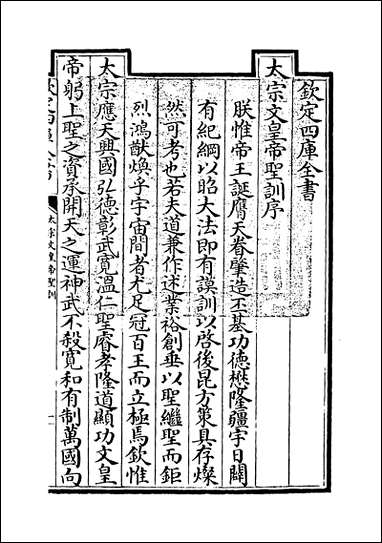 欽定四庫全書
太宗文皇帝聖訓序
朕惟帝王誕膺天眷肇造丕基功德懋隆疆宇日闢
有紀綱以昭大法即有謨訓以啓後昆方策具存燦
然可考也若夫道兼作述業裕創垂以聖繼聖而鉅
烈鴻猷煥乎宇宙間者尤足冠百王而立極焉欽惟
太宗應天興國弘德彰武寛溫仁聖睿孝隆道顯功文皇
帝躬上聖之資承開天之運神武不殺寛和有制萬國向
太宗文皇帝聖訓